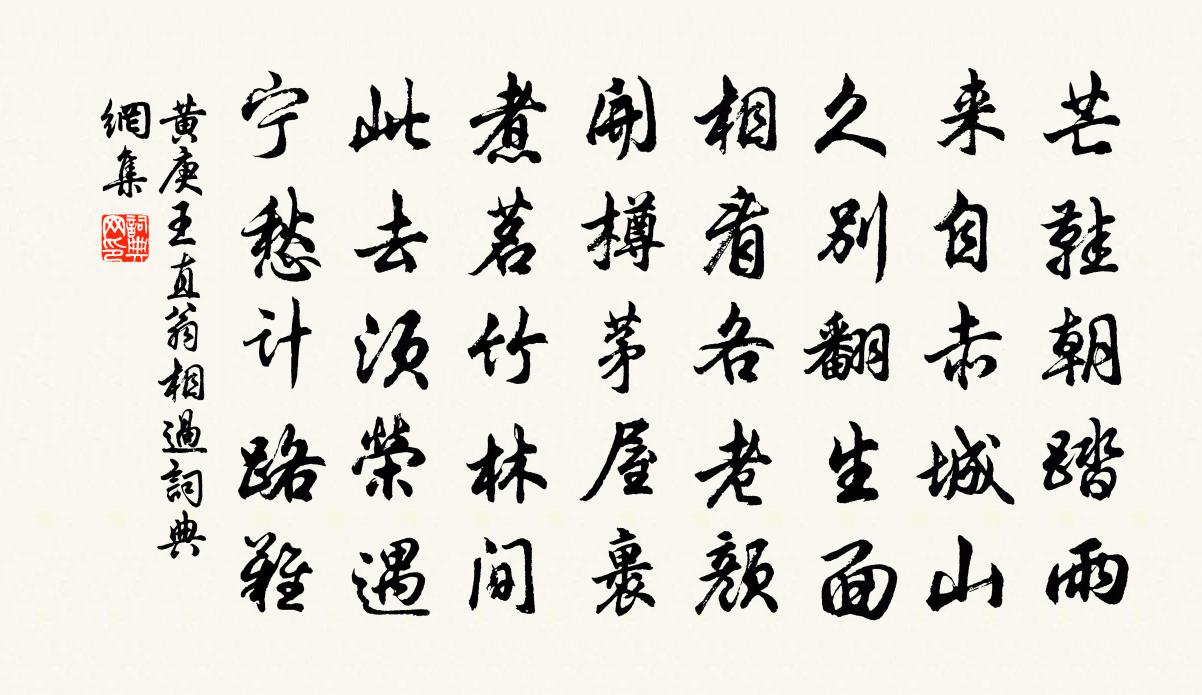 芒鞋朝踏雨
来自赤城山
久别翻生面
相看各老顔
開樽茅屋裏
煮茗竹林間
此去须榮遇
宁愁计路難
黄庚王直翁相過詞典
網集
詞典
网印